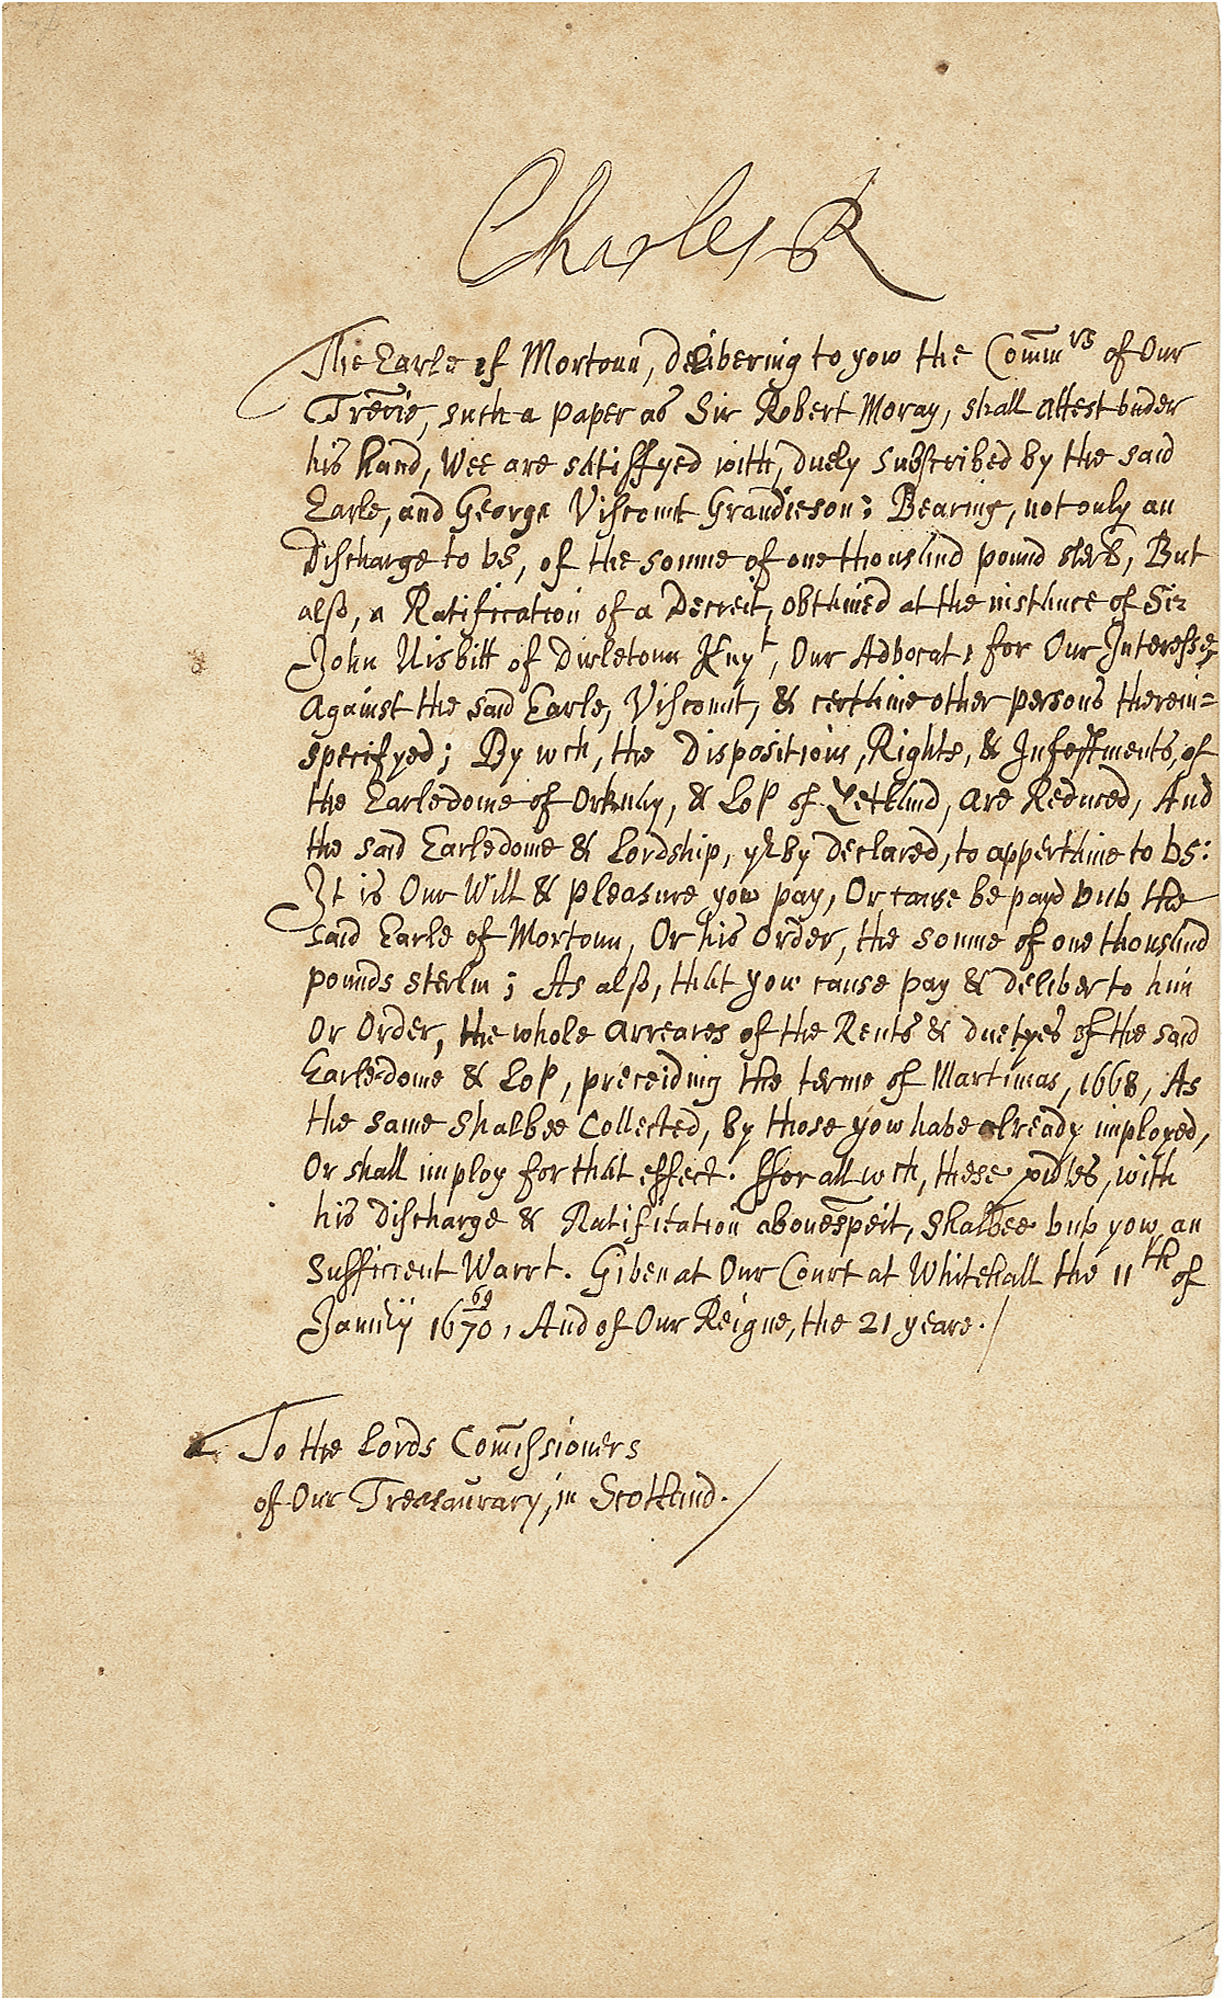 Charles R
The Earle of Mortoun, delivering to yow the Com̄rs of Our
Trērie, such a paper as Sir Robert Moray, shall attest vnder
his hand, Wee are satisffyed with, duely subscribed by the said
Earle, and George Viscount Grandieson; Bearing, not only an
Discharge to vs, of the soume of one thousand pound sterl, But
also, a Ratification of a Decreit, obtained at the instance of Sir
John Nisbitt of Dirletoun Knyt, Our Advocat, for Our Interesse,
Against the said Earle, Viscount, & certaine other persons therein=
specifyed; By wch, the Dispositions, Rights, & Infeftments, of
the Earledome of Orknay, & Lop of Zetland, are Reduced, And
the said Earledome & Lordship, yrby declared, to appertaine to vs:
It is Our Will & pleasure yow pay, Or cause be payd vnto the
said Earle of Mortoun, Or his Order, the soume of one thousand
pounds sterlin; As also, that yow cause pay & deliver to him
Or Order, the whole arreares of the Rents & duetyes of the said
Earledome & Lop, preceiding the terme of Martimas, 1668, As
the same shalbee Collected, by those yow have already imployed,
Or shall imploy for that effect. ffor all wch, these pn̄tes, with
his discharge & Ratification abouespeit, shalbee vnto yow an
sufficient Warrt. Given at Our Court at Whitehall the 11th of
Januäÿ 16 69/70, And of Our Reigne, the 21 yeare.
To the Lords Com̄issioners
of Our Treasaurary, in Scotland.